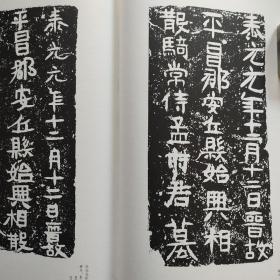 泰元元年十二月十二日晉故
平昌郡安丘縣始興相
散騎常侍孟府君墓
泰元元年十二月十二日晉故
平昌郡安丘縣始興相散